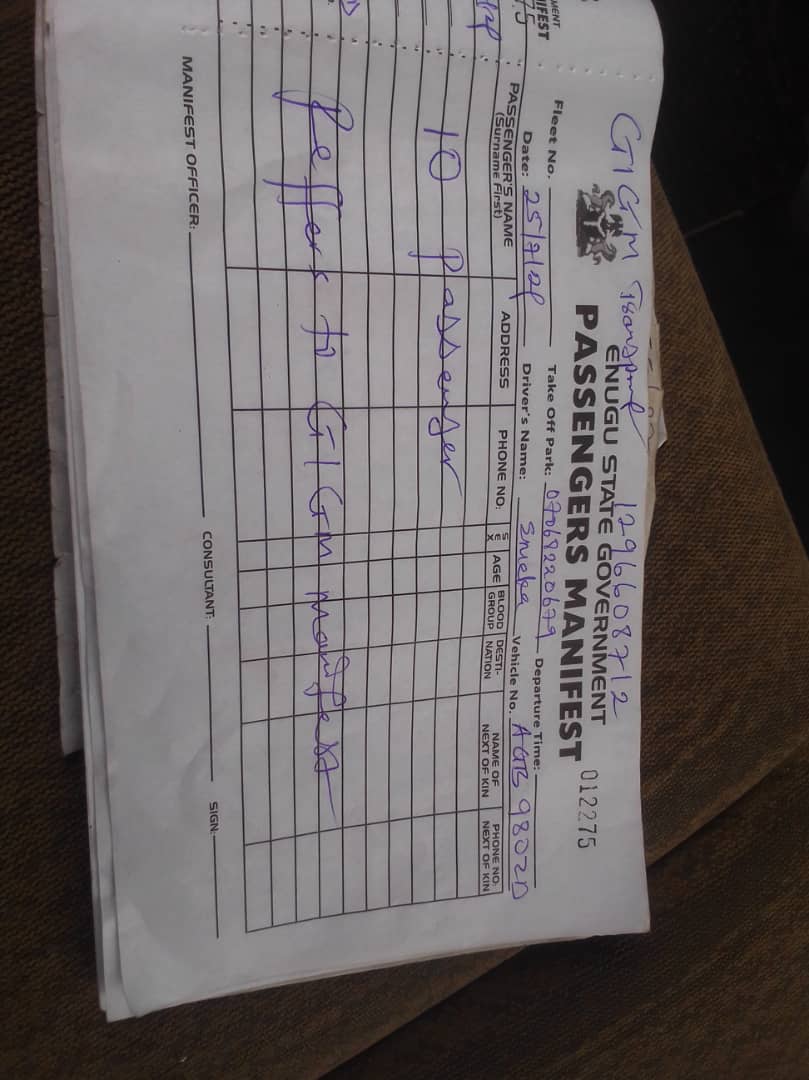 GIGM Transport 1296608712
ENUGU STATE GOVERNMENT
PASSENGERS MANIFEST 012275
Fleet No. Take Off Park: 07068220679 Departure Time:
Date: 25/7/24 Driver's Name: Emeka Vehicle No. AGB 98020
PASSENGER'S NAME (Surname First) ADDRESS PHONE NO: SEX AGE BLOOD GROUP DESTI-NATION NAME OF NEXT OF KIN PHONE NO. NEXT OF KIN
10 Passenger
Reffers to GIGM manifest
MANIFEST OFFICER: CONSULTANT: SIGN: